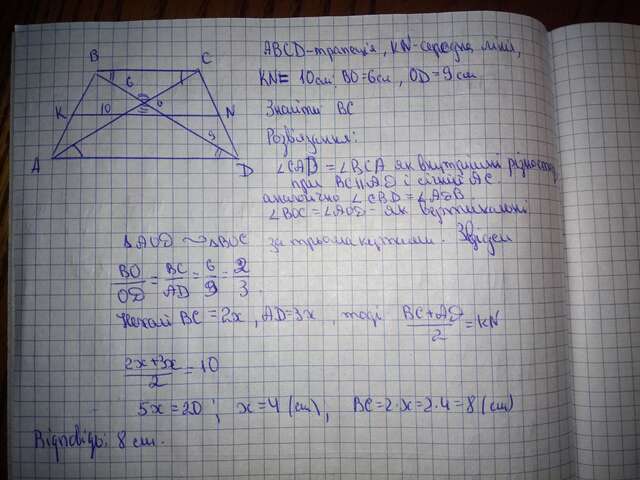 ABCD-трапеція, KN-середня лінія,
KN= 10см, BO=6см, OD=9см
Знайти BC
Розв'язання:
∠CAD = ∠BCA як внутрішні різностор
при BC||AD і січній AC.
аналогічно ∠CBD = ∠ADB
∠BOC = ∠AOD - як вертикальні
B
C
6
K
10
O
N
9
A
D
ΔAOD ~ ΔBOC за трьома кутами. Звідси
BO/OD = BC/AD = 6/9 = 2/3.
Нехай BC = 2x, AD=3x, тоді (BC+AD)/2 = KN
(2x+3x)/2 = 10
5x=20; x=4 (см), BC=2·x=2·4=8 (см)
Відповідь: 8 см.